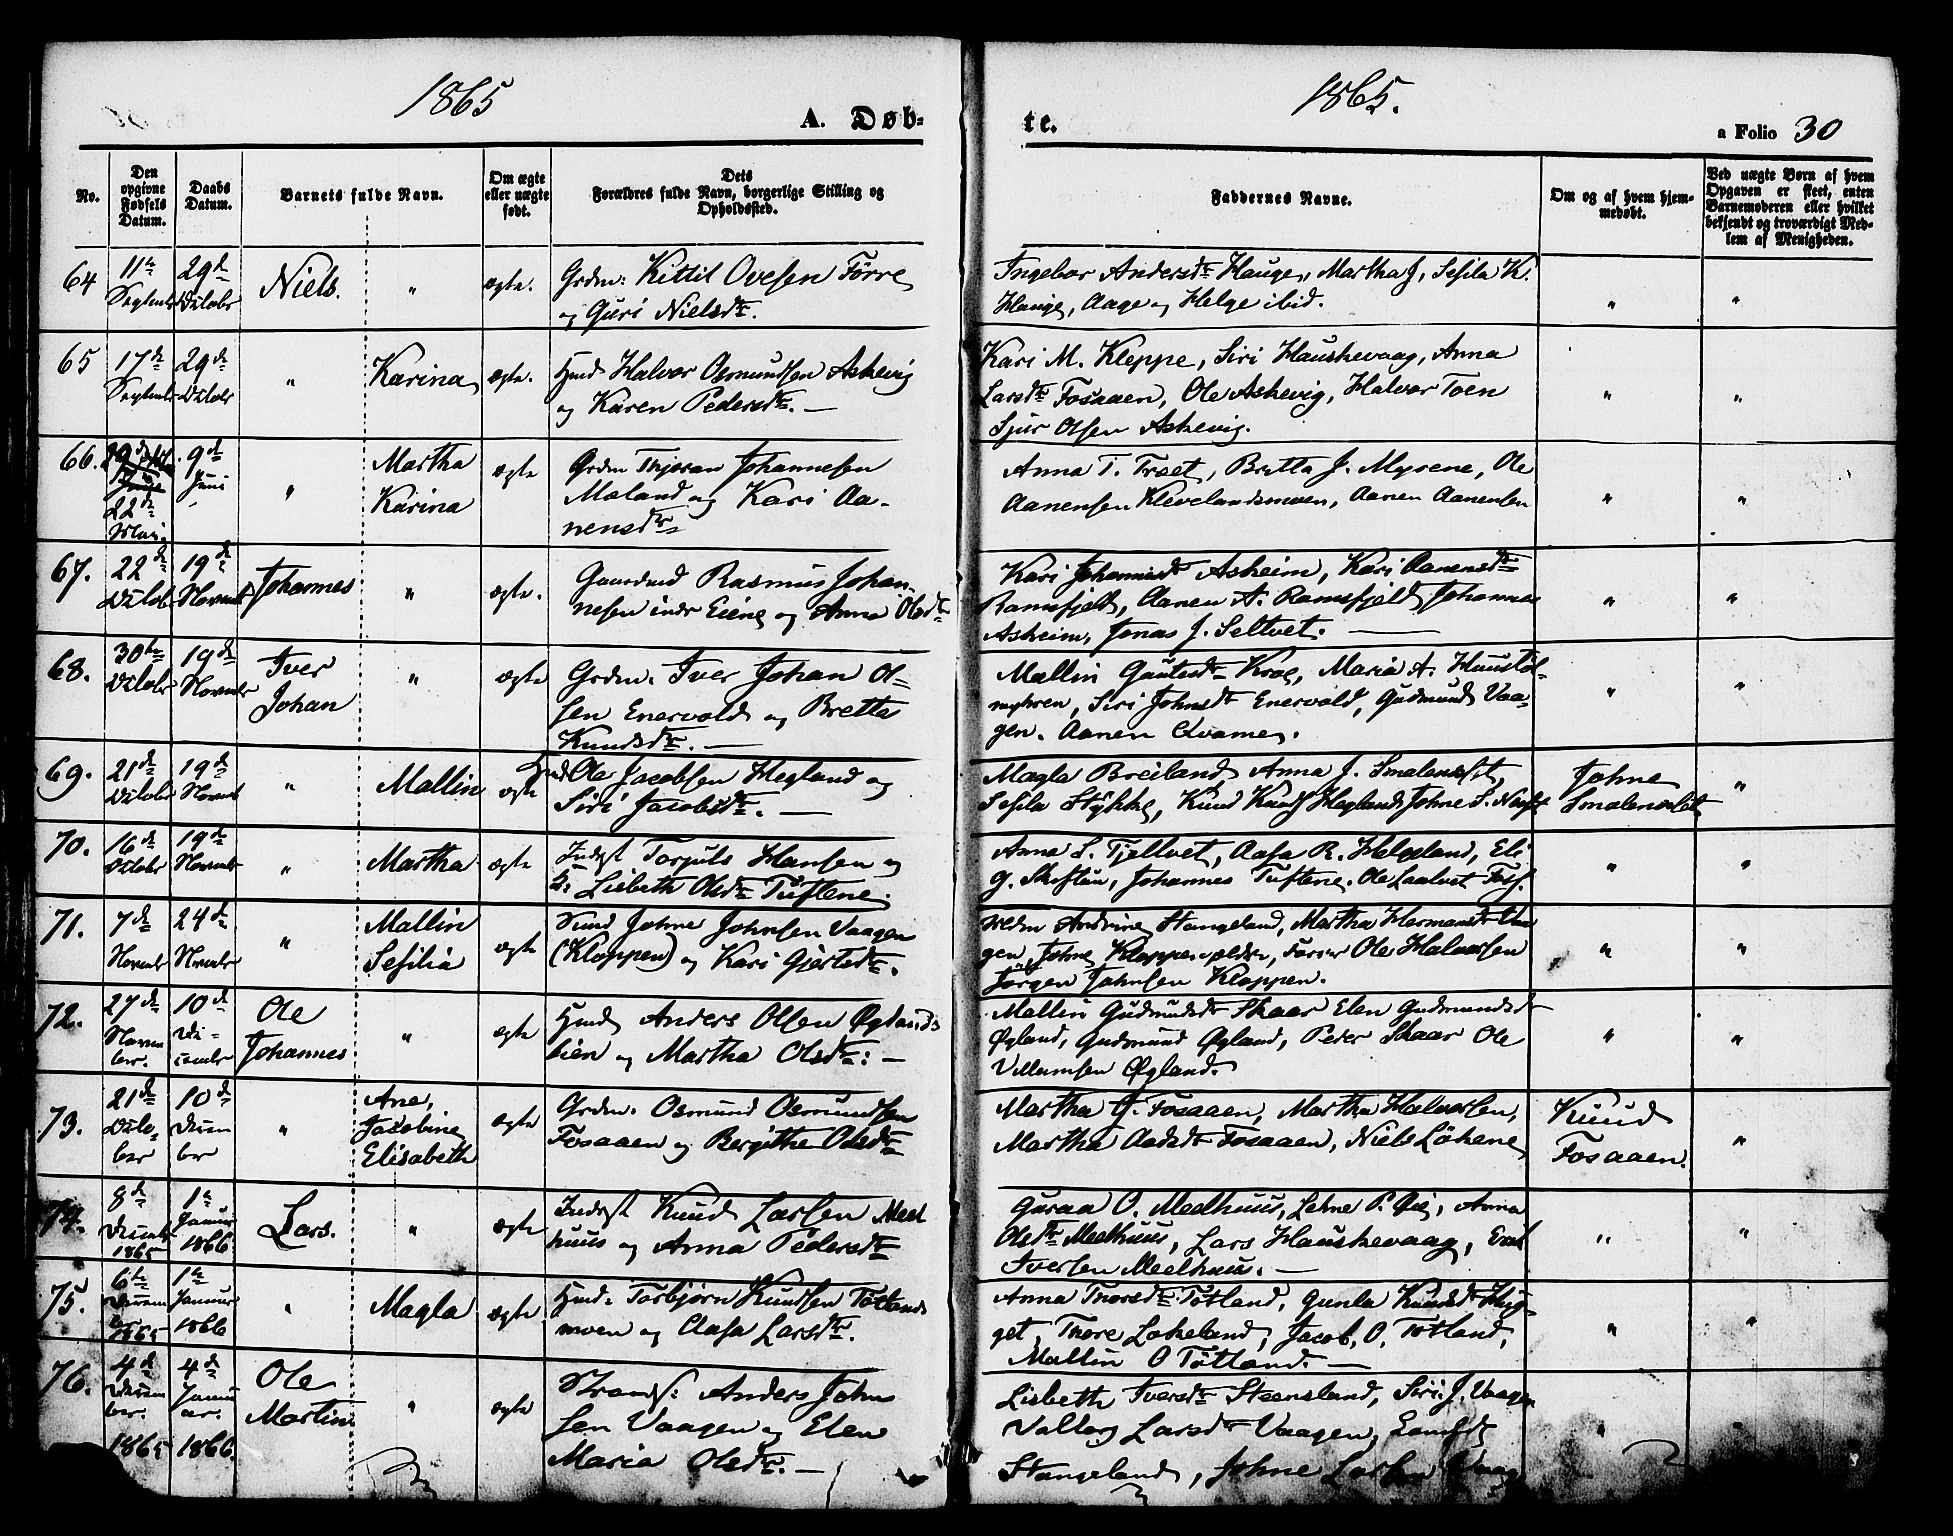 1865
1865.
A. Døb-
te.
a Folio 30
No.
Den opgivne Fødsels Datum.
Daabs Datum.
Barnets fulde Navn.
Om ægte eller uægte født.
Dets Forældres fulde Navn, borgerlige Stilling og Opholdssted.
Faddernes Navne.
Om og af hvem hjemmedøbt.
Ved uægte Børn af hvem Opgaven er skeet, enten Barnemoderen eller hvilket bekjendt og troværdigt Medlem af Menigheden.
64 11te Septembr 29de Octobr Niels. " ægte. Grdm: Kittil Ovesen Førre
og Guri Nielsdtr.
Ingebor Andersdtr Hauge, Martha J, Sesila K.
Hauge, Aage og Helge ibid. " "
65 17de Septembr 29de Octobr " Karina ægte. Hmd Halvor Osmundsen Askevig
og Karen Pedersdtr. —
Kari M. Kleppe, Siri Hauskevaag, Anna
Larsdtr Fosaaen, Ole Askevig, Halvor Toen
Sjur Olsen Askevig. " "
66. 22de Mai. 9de Juni " Martha
Karina ægte Grdm Thjøran Johannesen
Mæland og Kari Aa-
nensdtr
Anna T. Træet, Bretta J. Myrene, Ole
Aanensen Klevelandsmoen, Aanen Aanensen " "
67. 22de Octobr 19de Novembr Johannes " ægte. Gaardmd Rasmus Johan-
nesen indr Eiene og Anna Olsdtr
Kari Johannesdtr Askeim, Kari Aanensdtr
Ramsfjeld, Aanen A. Ramsfjeld Johannes
Askeim, Jonas J. Seltvet. — " "
68. 30te Octobr 19de Novembr Iver
Johan " ægte Grdm: Iver Johan Ol-
sen Enervold og Bretta
Knudsdtr. —
Mallin Gautesdtr Kroe, Maria A. Huustøl-
myhren, Siri Johnsdtr Enervold, Gudmund Vaa-
gen. Aanen Qvame. " "
69. 21de Octobr 19de Novembr " Mallin ægte Hmd Ole Jacobsen Hegland og
Siri Jacobsdtr. —
Magla Breiland Anna J. Smalenæset,
Sesila Stykke, Knud Knudsen Hegland Johne S. Næset
Johne
Smalenæset "
70. 16de Octobr 19de Novembr " Martha ægte Inderst Torjuls Hansen og
K: Lisbeth Olsdtr Tuftene.
Anna S. Tjeltvet, Aasa R. Helgeland, Eli
G. Skiftun, Johannes Tuftene. Ole Laalvet " "
71. 7de Novembr 24de Novembr " Mallin
Sesilia ægte Johne Johnsen Vaagen
(Kloppen) og Kari Gjertsdtr.
Andrine Stangeland, Martha Hermansdtr Vaa-
gen, Johne Kloppen, Ole Halvorsen
Jørgen Johnsen Kloppen. " "
72. 27de Novem
ber. 10de De-
cembr Ole
Johannes " ægte Hmd Anders Olsen Øglands-
lien og Martha Olsdtr: —
Mallin Gudmundsdtr Skaar Elen Gudmundsdtr
Øgland, Gudmund Øgland, Peder Skaar Ole
Villumsen Øgland. " "
73. 21de Octo-
ber 10de Decem
ber " Ane,
Jacobine
Elisabeth ægte Grdm: Osmund Osmundsen
Fosaaen og Bergithe Olsdtr
Martha J. Fosaaen, Martha Halvorsen,
Martha Aadsdtr Fosaaen, Niels Løkene
Knud
Fosaaen. "
74. 8de Decembr
1865 1te Januar
1866. Lars. " ægte Inderst Knud Larsen Meel
huus og Anna Pedersdtr
Guraa O. Meelhuus, Lehne P. Øie, Anna
Olsdtr Meelhuus, Lars Hauskevaag,
Iversen Meelhuus. — " "
75. 6te Decem
ber 1865 1te Januar
1866 " Magla ægte Hmd: Torbjørn Knudsen Tøtlands
moen og Aasa Larsdtr.
Anna Thorsdtr Tøtland, Gunla Knudsdtr Hug-
get, Thore Lokeland, Jacob O. Tøtland,
Mallin O Tøtland. — " "
76. 4de Decem
ber.
1865 4de Janu
ar.
1866. Ole
Martin " ægte Strands: Anders Johns
sen Vaagen og Elen
Maria Olsdtr. —
Lisbeth Iversdtr Steensland, Siri J. Vaagen
Valborg Larsdtr Vaagen,
Stangeland, Johne Larsen Vaag " "